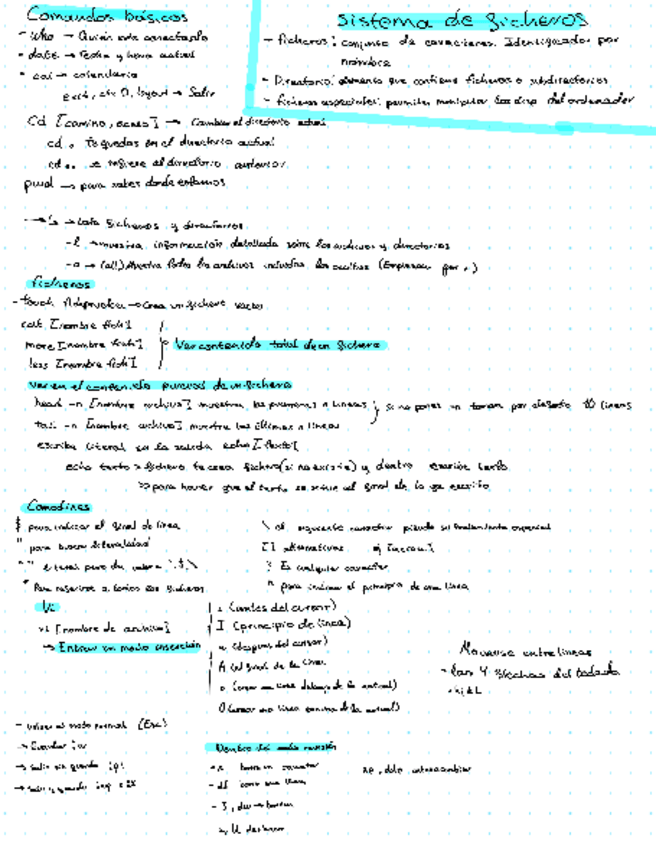 Comandos básicos
- who → Quién está conectado
- date → Fecha y hora actual
- cal → calendario
exit, ctr D, logout → Salir
sistema de ficheros
- ficheros: conjunto de caracteres. Identificador por
nombre
- Directorio: elemento que contiene ficheros o subdirectorios
- ficheros especiales: permiten manipular los disp. del ordenador
cd [camino, acceso] → Cambiar el directorio actual
cd . Te quedas en el directorio actual
cd .. se refiere al directorio anterior
pwd → para saber donde estamos
→ ls → Lista ficheros y directorios
-l → muestra información detallada sobre los archivos y directorios
-a → (all) Muestra todos los archivos incluidos los ocultos (Empiezan por .)
ficheros
- touch → Crea un fichero vacío
cat [nombre fich]
more [nombre fich]
less [nombre fich]
Ver contenido total de un fichero
ver en el contenido parcial de un fichero
head -n [nombre archivo] muestra las primeras n lineas
tail -n [nombre archivo] muestra las últimas n lineas
si no pones -n toman por defecto 10 lineas
escribe literal en la salida echo [texto]
echo texto > fichero te crea fichero (si no existe) y dentro escribe texto
>> para hacer que el texto se sitúe al final de lo ya escrito
Comodines
$ para indicar el final de linea
" para buscar literalidad
* Para referirse a todos los ficheros
\ el siguiente caracter pierde su tratamiento especial
[] alternativas
? Es cualquier caracter
^ para indicar el principio de una linea
Vi
vi [nombre de archivo]
→ Entrar en modo inserción
i (antes del cursor)
I (principio de linea)
a (despues del cursor)
A (al final de la linea)
o (crear una linea debajo de la actual)
O (crear una linea encima de la actual)
Moverse entre lineas
- Las 4 flechas del teclado
- hjkl
- volver al modo normal (Esc)
→ Guardar :w
→ Salir sin guardar :q!
→ Salir y guardar :wq o ZZ
Dentro del modo
- x borra un caracter
- dd borra una linea
xp, ddp intercambiar
u, U deshacer